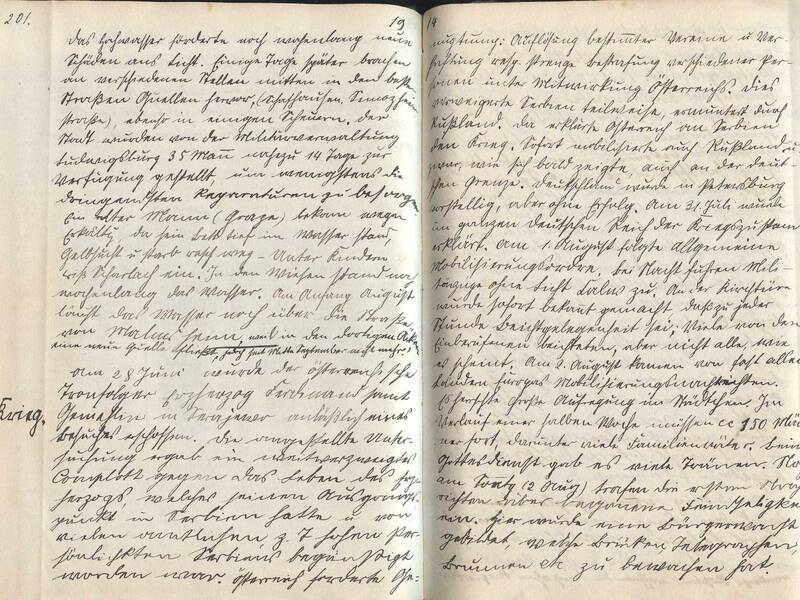 201.
19
Das Hochwasser forderte noch wochenlang neue
Schäden ans Licht. Einige Tage später brachen
an verschiedenen Stellen mitten in den besten
Straßen Quellen hervor. (Schafhausen, Simozheimer
straße), ebenso in einigen Scheuern. Der
Stadt wurden von der Militärverwaltung
Ludwigsburg 35 Mann nahezu 14 Tage zur
Verfügung gestellt um wenigstens die
dringendsten Reparaturen zu besorgen.
Ein alter Mann bekam wegen
Erkältg, da sein Bett tief im Wasser stand,
Gelbsucht u starb rasch weg – Unter Kindern
riß Scharlach ein. In den Wiesen stand noch
wochenlang das Wasser. Am Anfang August
lauft das Wasser noch über die Straße
von Malmsheim, weil in den dortigen Äckern
eine neue Quelle fließt, jedoch seit Mitte September nicht mehr.
Krieg.
Am 28 Juni wurde der österreichische
Tronfolger Erzherzog Ferdinand samt
Gemahlin in Serajewo anläßlich eines
Besuches erschossen. Die angestellte Unter-
suchung ergab ein weitverzweigtes
Complott gegen das Leben des Erz-
herzogs, welches seinen Ausgangs-
punkt in Serbien hatte u von
vielen amtlichen z. T hohen Per-
sönlichkten Serbiens begünstigt
worden war. Österreich forderte Ge-
14
nugtuung: Auflösung bestimmter Vereine u Ver-
haftung resp. strenge Bestrafung verschiedener Per-
sonen unter Mitwirkung Österreichs. Dies
verweigerte Serbien teilweise, ermuntert durch
Rußland. Da erklärte Österreich an Serbien
den Krieg. Sofort mobilisierte auch Rußland u
zwar, wie sich bald zeigte, auch an der deut-
schen Grenze. Deutschland wurde in Petersburg
vorstellig, aber ohne Erfolg. Am 31. Juli wurde
im ganzen Deutschen Reich der Kriegszustand
erklärt. Am 1. August folgte Allgemeine
Mobilisierungsordre. Bei Nacht fuhren Mili-
tärzüge ohne Licht Calw zu. An der Kirchtüre
wurde sofort bekannt gemacht, daß zu jeder
Stunde Beichtgelegenheit sei. Viele von den
Einberufenen beichteten, aber nicht alle, wie
es scheint. Am 2. August kamen von fast allen
Landen Europas Mobilisierungsnachrichten.
Es herrschte große Aufregung im Städtchen. Im
Verlauf einer halben Woche müssen cc 150 Män
ner fort, darunter viele Familienväter. Beim
Gottesdienst gab es viele Tränen. Noch
am Sontg (2 Aug) trafen die ersten Nach
richten über begonnene Feindseligkten
ein. Hier wurde eine Bürgerwacht
gebildet, welche Brücken, Telegraphen,
Brunnen etc zu bewachen hat.